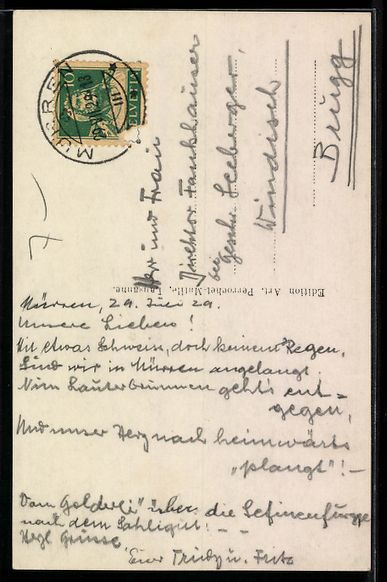 MÜRREN
10
HELVETIA
Herr und Frau
Direktor Fankhauser
bei Geschw. Seeberger,
Windisch
Brugg
Edition Art. Perrochet-Matile, Lausanne.
Mürren, 29. Juli 29.
Unsere Lieben!
Mit etwas Schwein, doch keinem Regen,
Sind wir in Mürren angelangt.
Nun Lauterbrunnen geht's ent-
gegen,
Und unser Herz nach heimwärts
"plangt"! –
Vom "Golderli" über die Sefinenfurgge
nach dem
Herzl. Grüsse
Eure Trudy u. Fritz